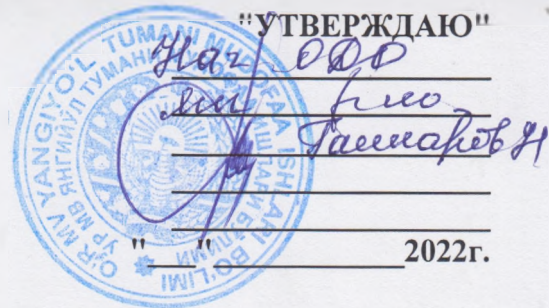 "УТВЕРЖДАЮ"
Нач ОДО
Ташкаров Н
"___"____________2022г.
O'R MV YANGIYO'L TUMANI MUDOFAA ISHLARI BO'LIMI
ЎР МВ ЯНГИЙЎЛ ТУМАНИ МУДОФАА ИШЛАРИ БЎЛИМИ